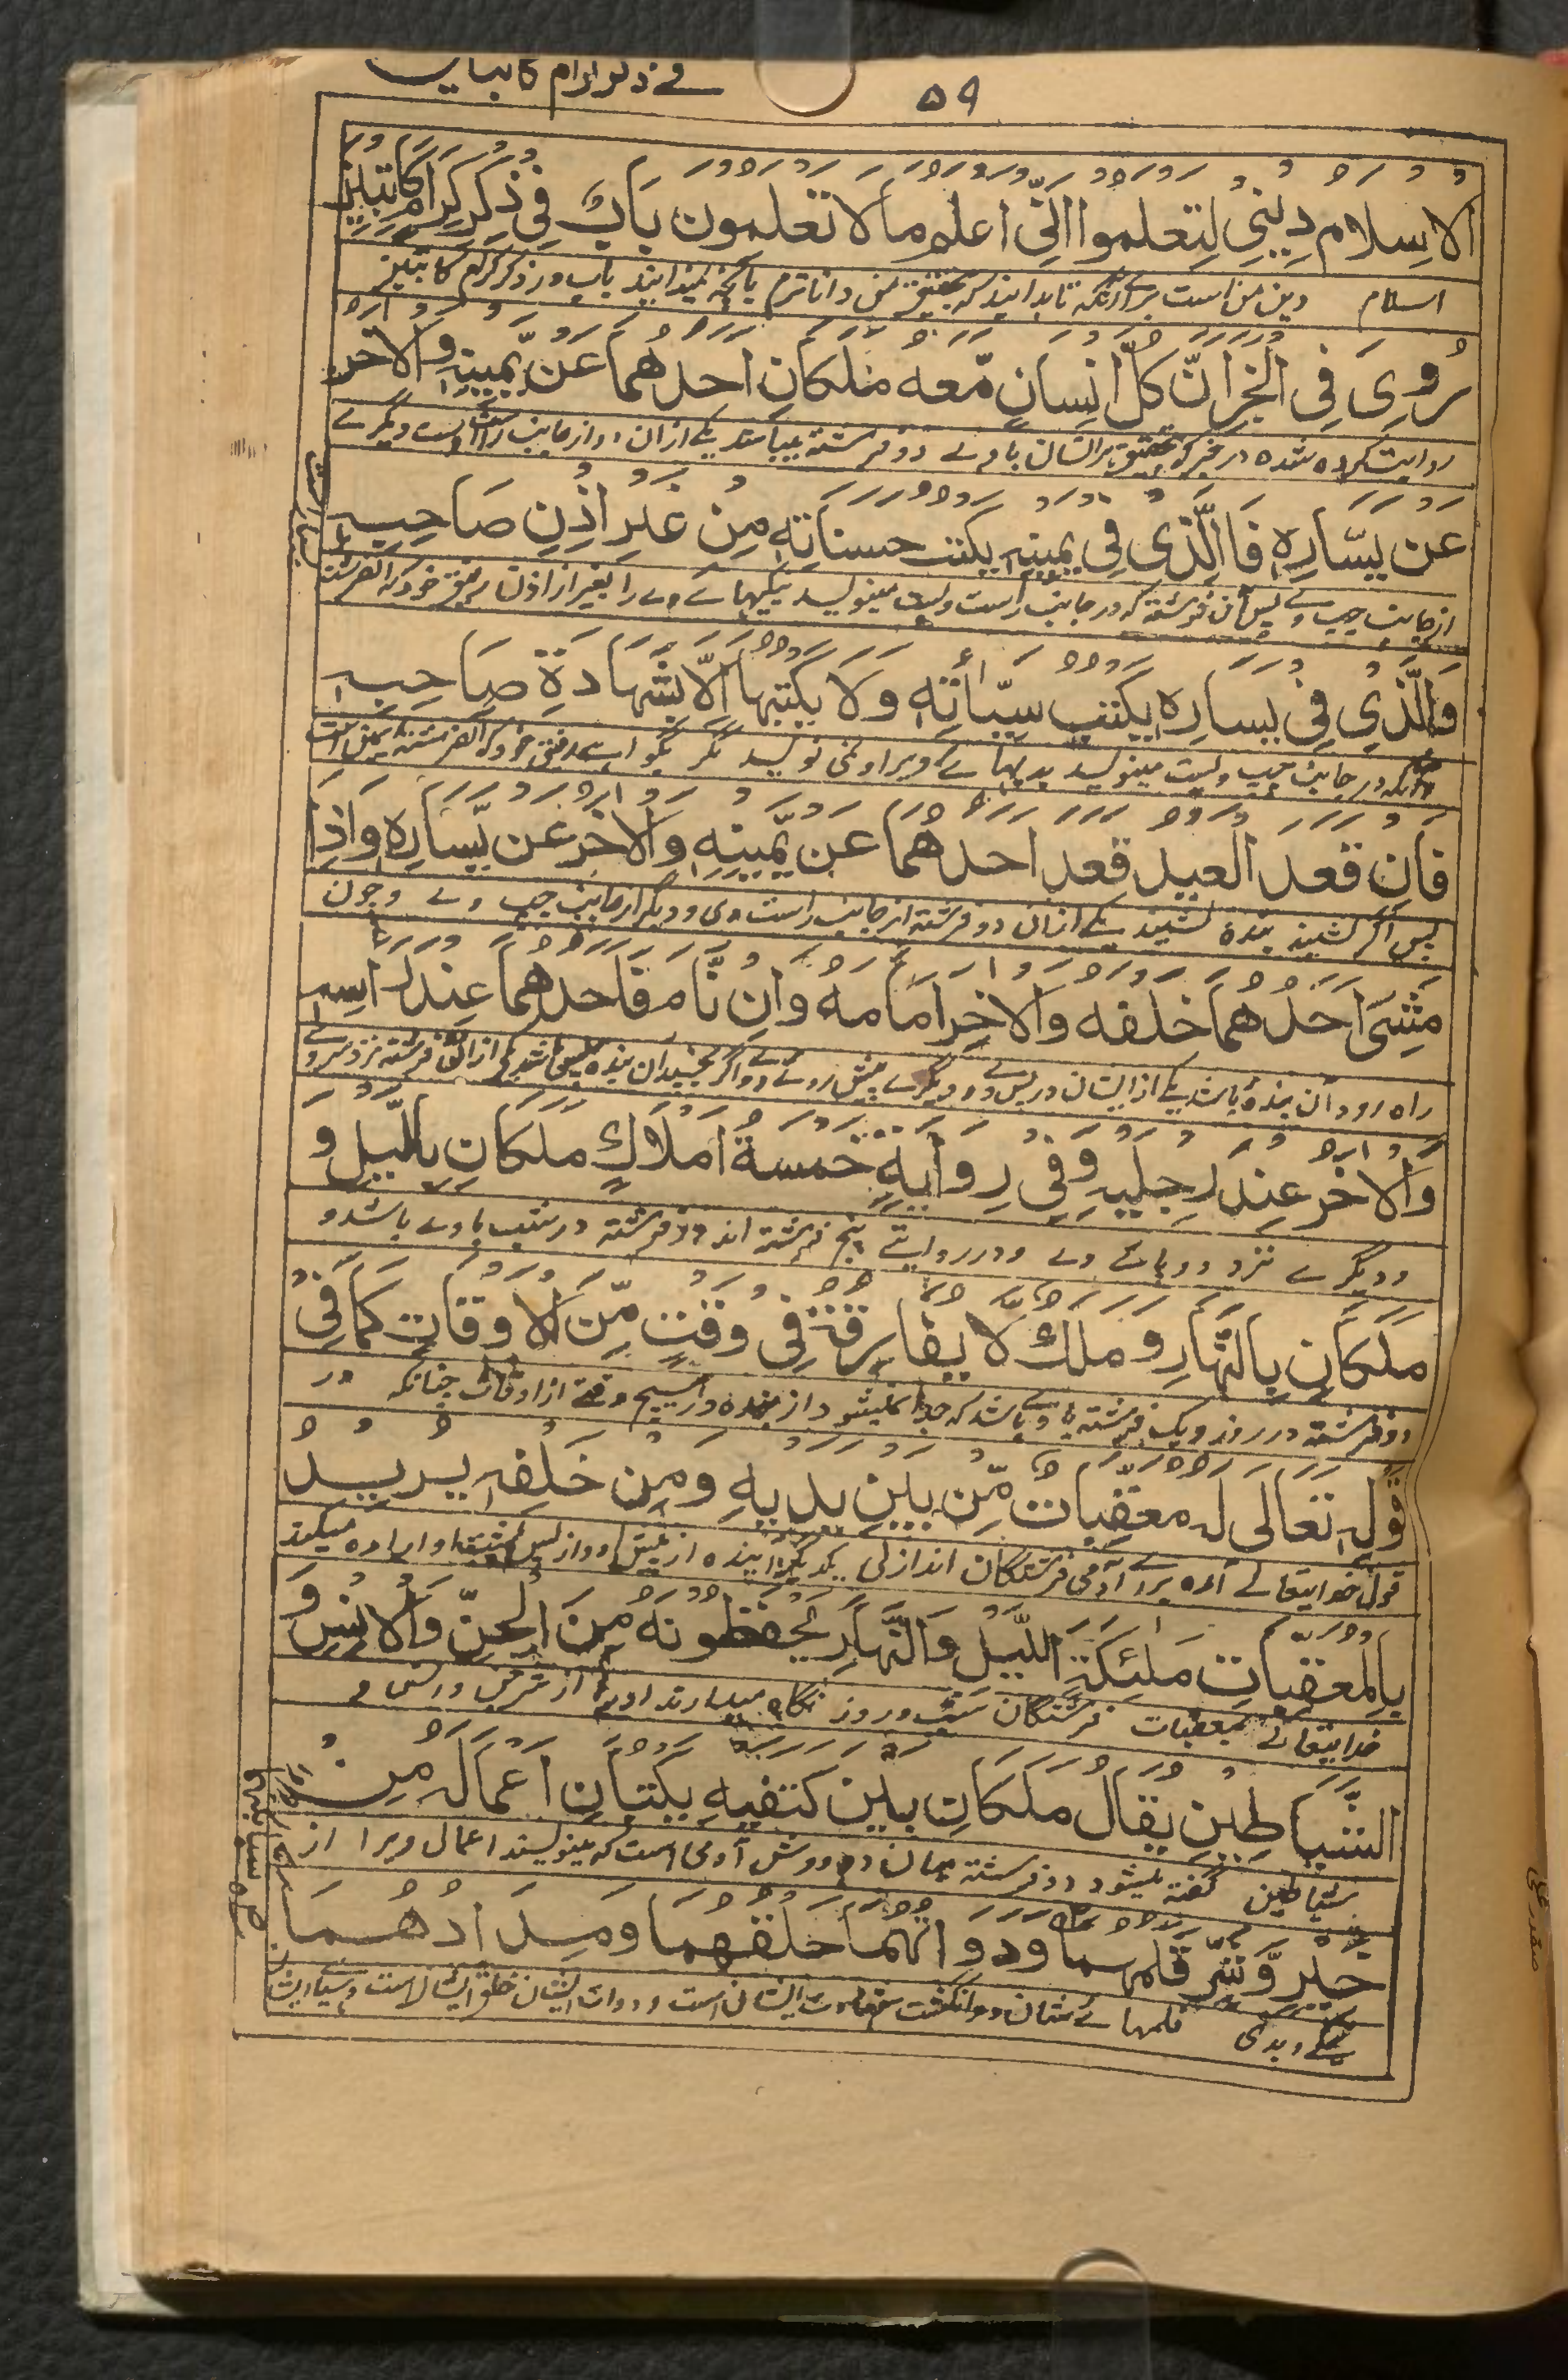 ۵۹
الاسلام ديني لتعلموا اني اعلم ما لا تعلمون باب في ذكر كرام كاتبين
اسلام دین من است برائے آنکه تا بدانید که بتحقیق من داناترم بآنچه نمیدانید باب در ذکر کرام کاتبین
روي في الخبر ان كل انسان معه ملكان احدهما عن يمينه والاخر
روایت کرده شده در خبر که بتحقیق هر انسان با وے دو فرشته میباشند یکے ازان دو از جانب راست اوست و دیگرے
عن يساره فالذي في يمينه يكتب حسناته من غير اذن صاحبه
از جانب چپ وے پس آن فرشته که در جانب راست ویست مینویسد نیکیهائے وے را بغیر از اذن رفیق خود که
والذي في يساره يكتب سيأته ولا يكتبها الا بشهادة صاحبه
وآنکه در جانب چپ ویست مینویسد بدیهائے ویرا و نمی نویسد مگر بگواهے رفیق خود که
فان قعد العبد قعد احدهما عن يمينه والاخر عن يساره واذا
پس اگر نشیند بنده نشیند یکے ازان دو فرشته از جانب راست وی و دیگر از جانب چپ وے وچون
مشى احدهما خلفه والاخر امامه وان نام فاحدهما عند راسه
راه رود آن بنده باشد یکے از ایشان در پس وے و دیگرے پیش روئے وے و اگر بخسپد آن بنده
والاخر عند رجليه وفي رواية خمسة املاك ملكان بالليل و
ودیگرے نزد دو پائے وے ودر روایتے پنج فرشته اند دو فرشته در شب با وے باشد و
ملكان بالنهار وملك لا يفارقه في وقت من الاوقات كما في
دو فرشته در روز ویک فرشته با وے باشد که جدا نمیشود از بنده در هیچ وقتے از اوقات چنانکه در
قوله تعالى له معقبات من بين يديه ومن خلفه يريد
قول خدایتعالے آمده برائے آدمی فرشتگان اند از پی یکدیگر آینده از پیش او و از پس او اراده میکند
بالمعقبات ملئكة الليل والنهار يحفظونه من الجن والانس و
خدایتعالے بمعقبات فرشتگان شب و روز نگاه میدارند او را از شر جن و انس و
الشياطين يقال ملكان بين كتفيه يكتبان اعماله من
شیاطین گفته میشود دو فرشته میان دو دوش آدمی است که مینویسند اعمال ویرا از
خير وشر قلمهما ودواتهما حلقهما ومدادهما
نیکے وبدی قلمهائے شان دو انگشت ایشان است و دوات ایشان حلق ایشان است و سیاهی